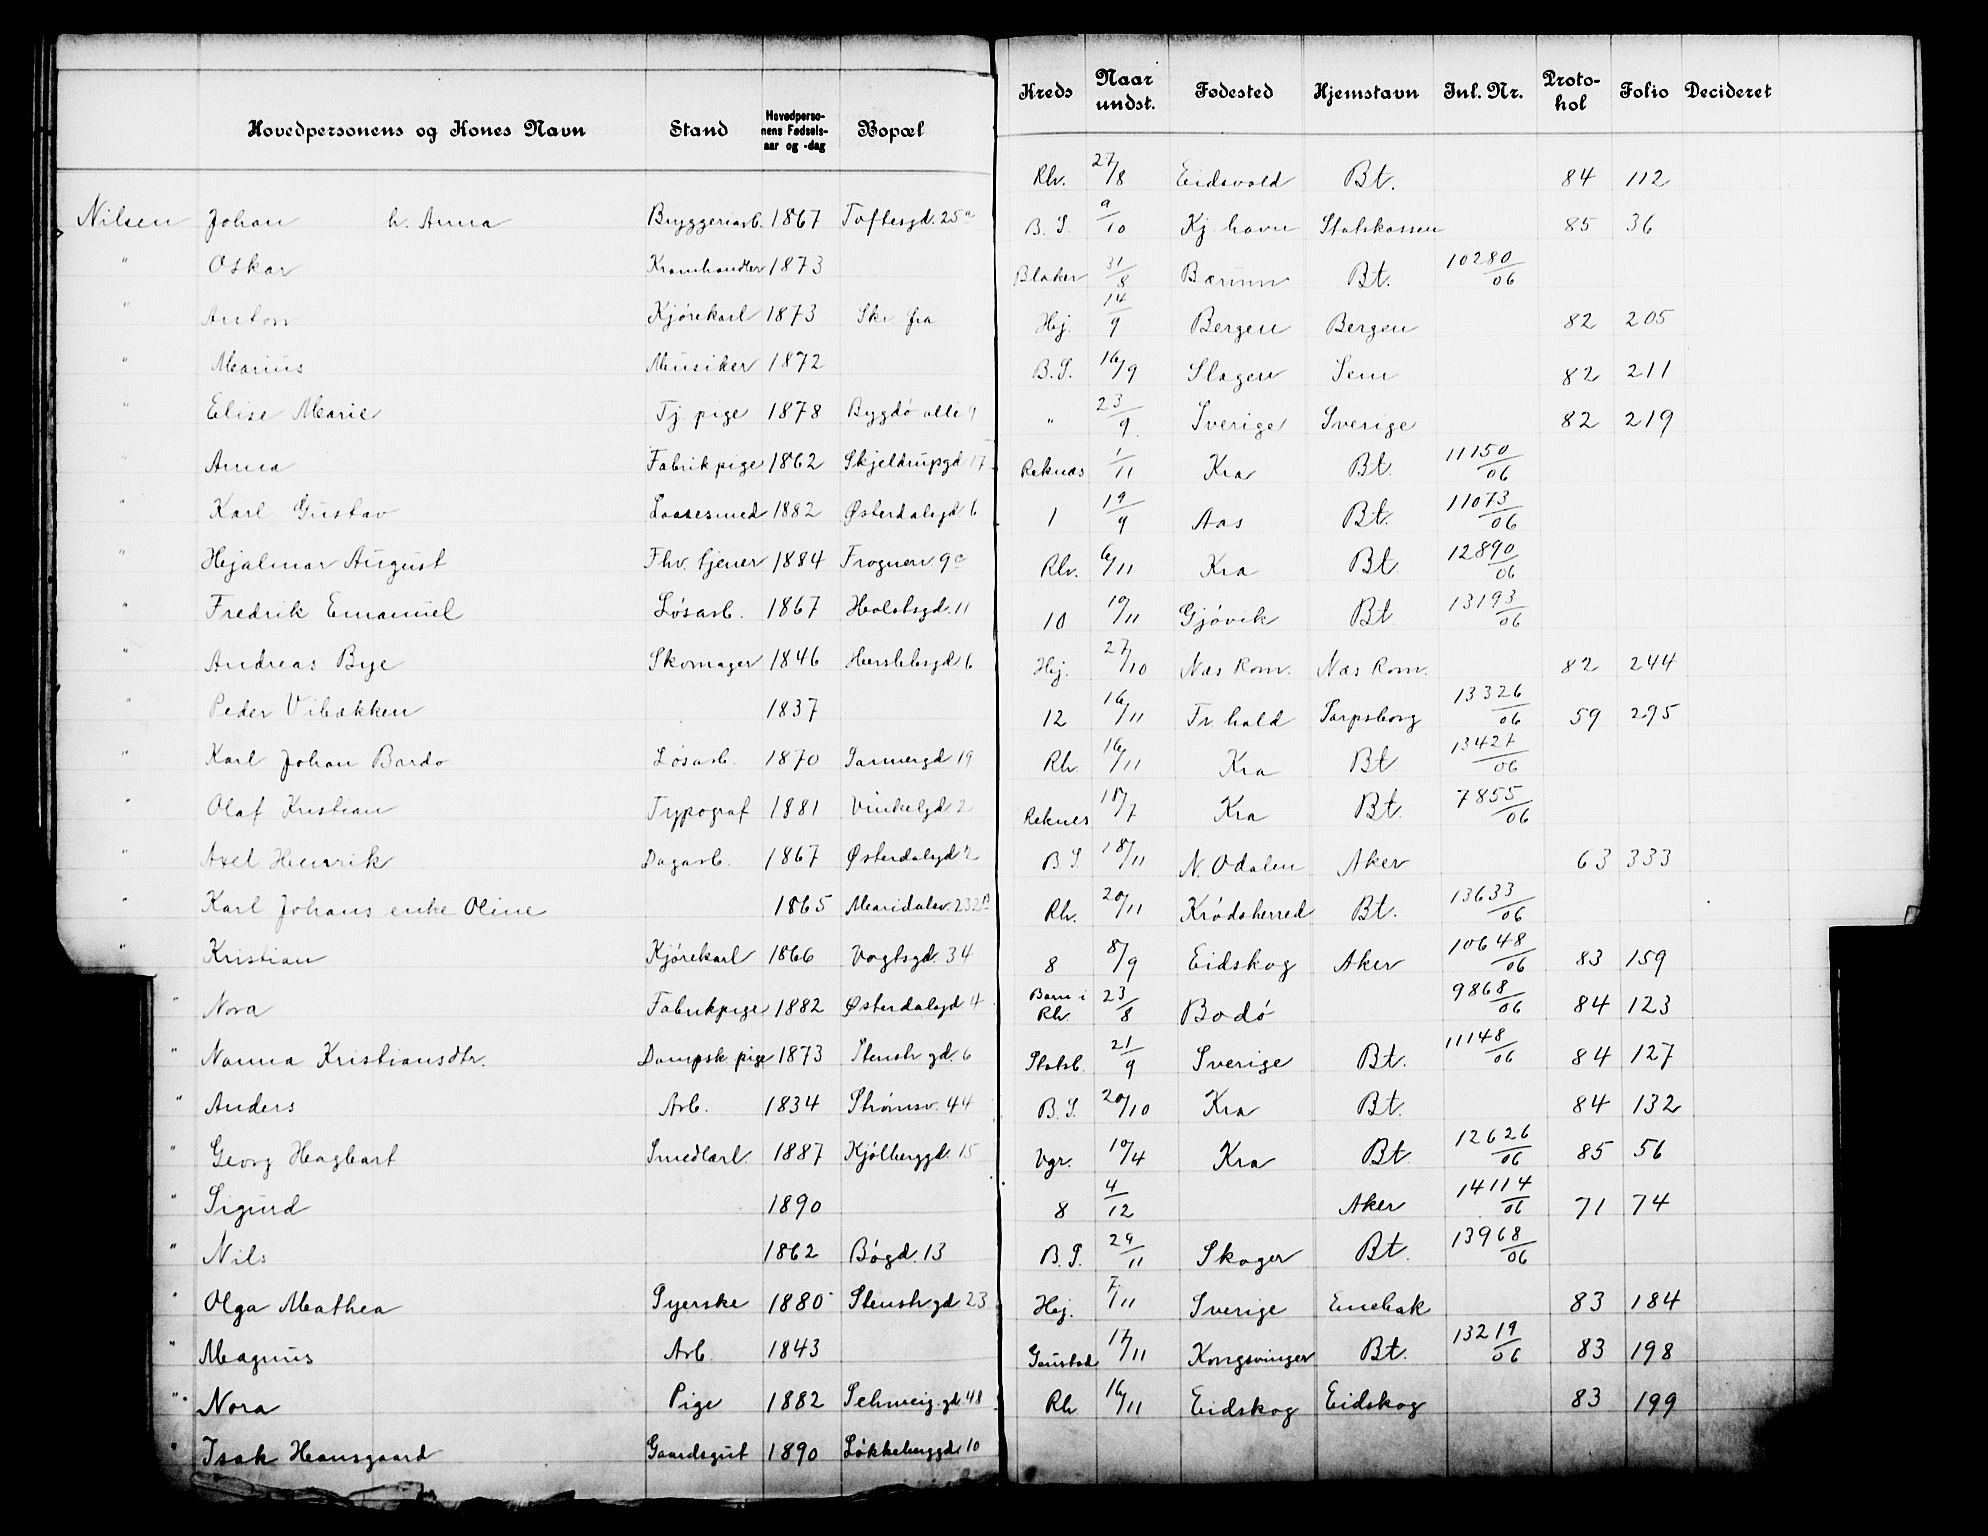 Hovedpersonens og Kones Navn | Stand | Hovedpersonens Fødselsaar og -dag | Bopæl
Nilsen Johan h. Anna | Bryggeriarb. | 1867 | Toftesgd. 25a
" Oskar | Kramhandler | 1873
" Anton | Kjørekarl | 1873 | Skr fra
" Marius | Musiker | 1872
" Elise Marie | Tj. pige | 1878 | Bygdö alle 9
" Anna | Fabrikpige | 1862 | Skjeldrupgd 17
" Karl Gustav | Laasesmed | 1882 | Østerdalsgd. 6
" Hjalmar August | Fhv. tjener | 1884 | Frognerv. 9c
" Fredrik Emanuel | Løsarb. | 1867 | Holstsgd. 11
" Andreas Bye | Skomager | 1846 | Herslebsgd. 6
" Peder Vibækken | 1837
" Karl Johan Bardo | Løsarb. | 1870 | Sannergd 19
" Olaf Kristian | Typograf | 1881 | Vinkelgd 2
" Axel Henrik | Dagarb. | 1867 | Østerdalsgd 2
" Karl Johans enke Oline | 1865 | Maridalsv. 232B
" Kristian | Kjørekarl | 1866 | Vogtsgd. 34
" Nora | Fabrikpige | 1882 | Østerdalsgd 4
" Nanna Kristiansdtr. | Dampsk. pige | 1873 | Stenstr gd. 6
" Anders | Arb. | 1834 | Strømsv. 44
" Georg Hagbart | Smedlærl. | 1887 | Kjölberggd. 15
" Sigurd | 1890
" Nils | 1862 | Bögd. 13
" Olga Mathea | Syerske | 1880 | Stenstr gd 23
" Magnus | Arb. | 1843
" Nora | Pige | 1882 | Schweig. gd. 48
" Isak Hansgaard | Gaardsgut | 1890 | Lökkeberggd. 10
Kreds | Naar undst. | Fødested | Hjemstavn | Inl. Nr. | Protokol | Folio | Decideret
Rh. | 27/8 | Eidsvold | Bt. | 84 | 112
B. S. | 9/10 | Kj. havn | Statskassen | 85 | 36
Blaker | 31/8 | Bærum | Bt. | 10280/06
Hej. | 14/9 | Bergen | Bergen | 82 | 205
B. S. | 16/9 | Slagen | Sem | 82 | 211
" | 23/9 | Sverige | Sverige | 82 | 219
Reknæs | 1/11 | Kra | Bt. | 11150/06
1 | 19/9 | Aas | Bt. | 11073/06
Rh. | 6/11 | Kra | Bt | 12890/06
10 | 10/11 | Gjövik | Bt. | 13193/06
Hej. | 27/10 | Næs Rom. | Næs Rom. | 82 | 244
12 | 16/11 | Fr. hald | Sarpsborg | 13326/06 | 59 | 295
Rh. | 16/11 | Kra | Bt | 13427/06
Reknes | 18/7 | Kra | Bt. | 7855/06
B S | 18/11 | N. Odalen | Aker | 63 | 333
Rh. | 20/11 | Krödsherred | Bt. | 13633/06
8 | 8/9 | Eidskog | Aker | 10648/06 | 83 | 159
Barn i Rh | 23/8 | Bodö | 9868/06 | 84 | 123
Statsb. | 21/9 | Sverige | Bt. | 11148/06 | 84 | 127
B. S. | 20/10 | Kra | Bt. | 84 | 132
Vgr. | 10/4 | Kra | Bt. | 12626/06 | 85 | 56
8 | 4/12 | Aker | 14114/06 | 71 | 74
B. S. | 29/11 | Skoger | Bt. | 13968/06
Hej. | 7/11 | Sverige | Enebak | 83 | 184
Gaustad | 17/11 | Kongsvinger | Bt. | 13219/06 | 83 | 198
Rh | 16/11 | Eidskog | Eidskog | 83 | 199